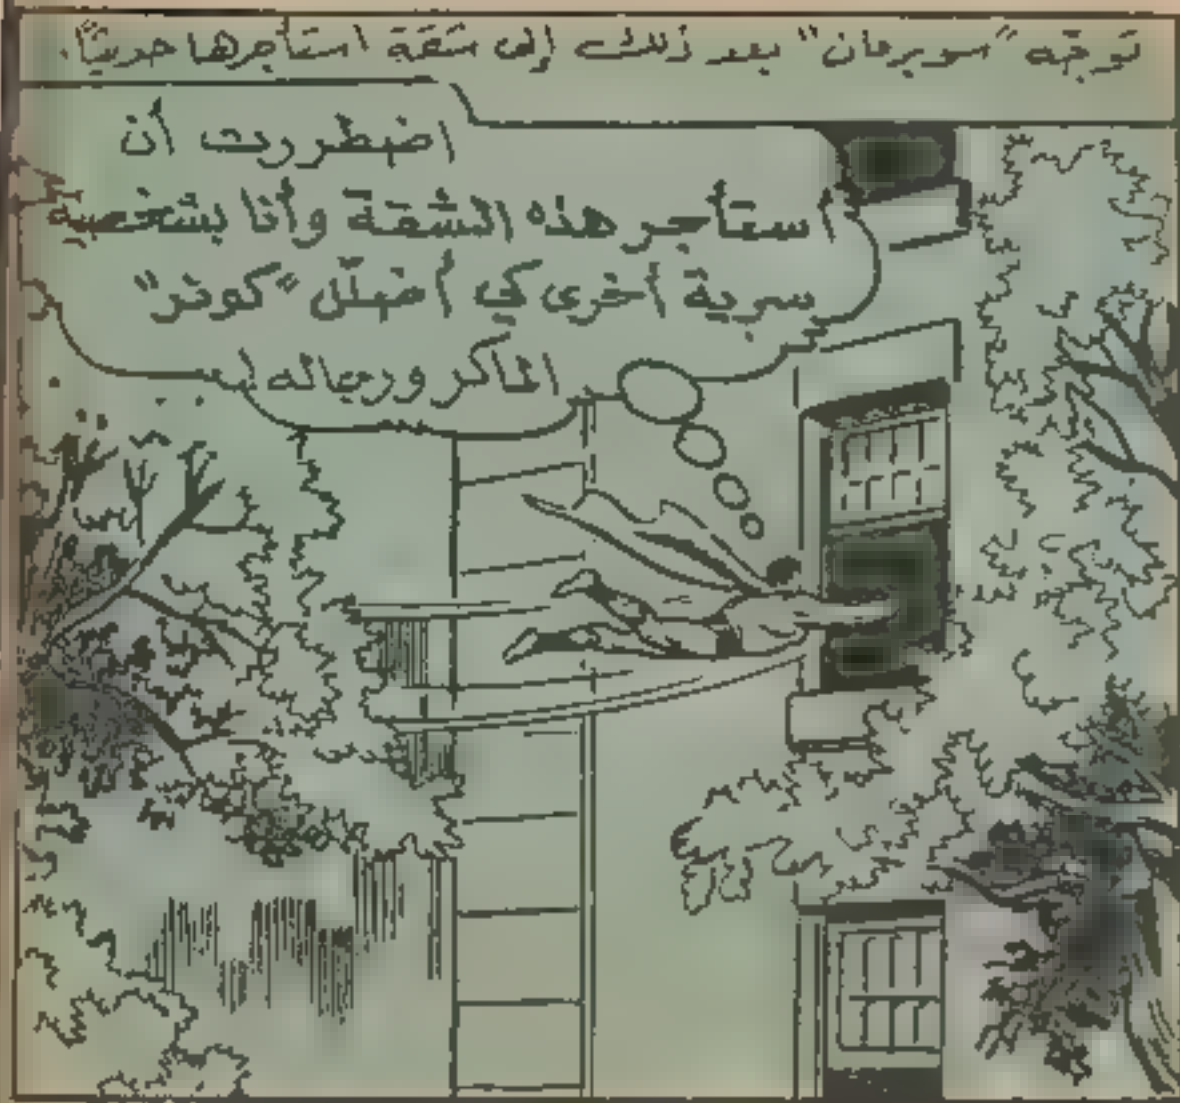 توجّه "سوبرمان" بعد ذلك إلى شقة استأجرها حديثاً.
اضطررت أن
أستأجر هذه الشقة وأنا بشخصية
سرية أخرى كي أضلّل "كونر"
الماكر ورجاله!